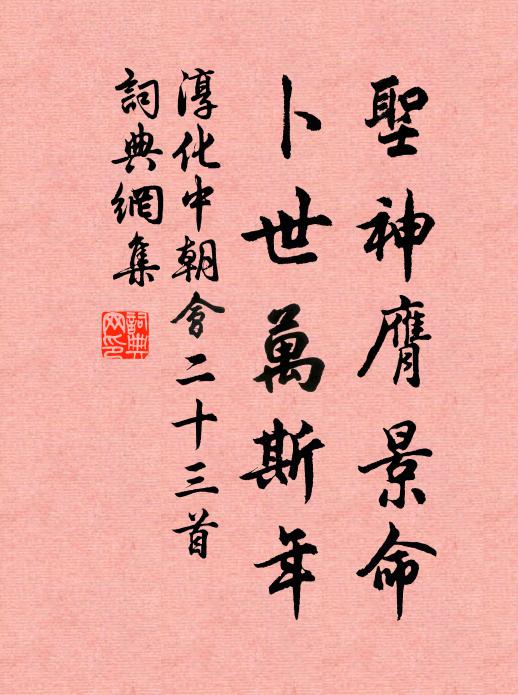 聖神膺景命
卜世萬斯年
淳化中朝會二十三首
詞典網集
詞典網印